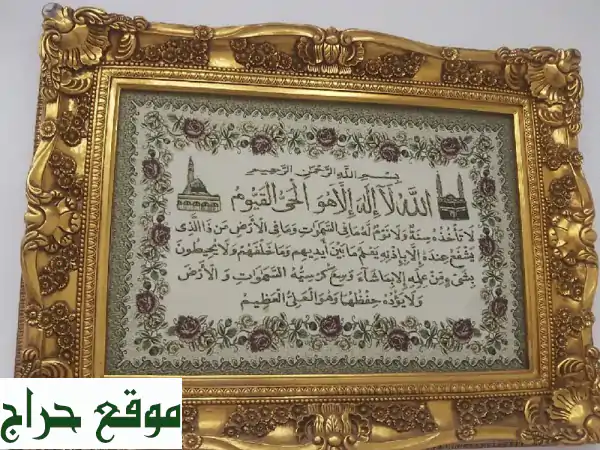 بِسْمِ اللَّهِ الرَّحْمَنِ الرَّحِيمِ
اَللّٰهُ لَآ اِلٰهَ اِلَّا هُوَ الْحَىُّ الْقَيُّومُ
لَا تَأْخُذُهُ سِنَةٌ وَلَا نَوْمٌ لَهُ مَا فِى السَّمٰوَاتِ وَمَا فِى الْأَرْضِ مَنْ ذَا الَّذِى
يَشْفَعُ عِنْدَهُ إِلَّا بِإِذْنِهِ يَعْلَمُ مَا بَيْنَ أَيْدِيهِمْ وَمَا خَلْفَهُمْ وَلَا يُحِيطُونَ
بِشَىْءٍ مِنْ عِلْمِهِ إِلَّا بِمَا شَاءَ وَسِعَ كُرْسِيُّهُ السَّمٰوَاتِ وَالْأَرْضَ
وَلَا يَؤُدُهُ حِفْظُهُمَا وَهُوَ الْعَلِىُّ الْعَظِيمُ
موقع حراج